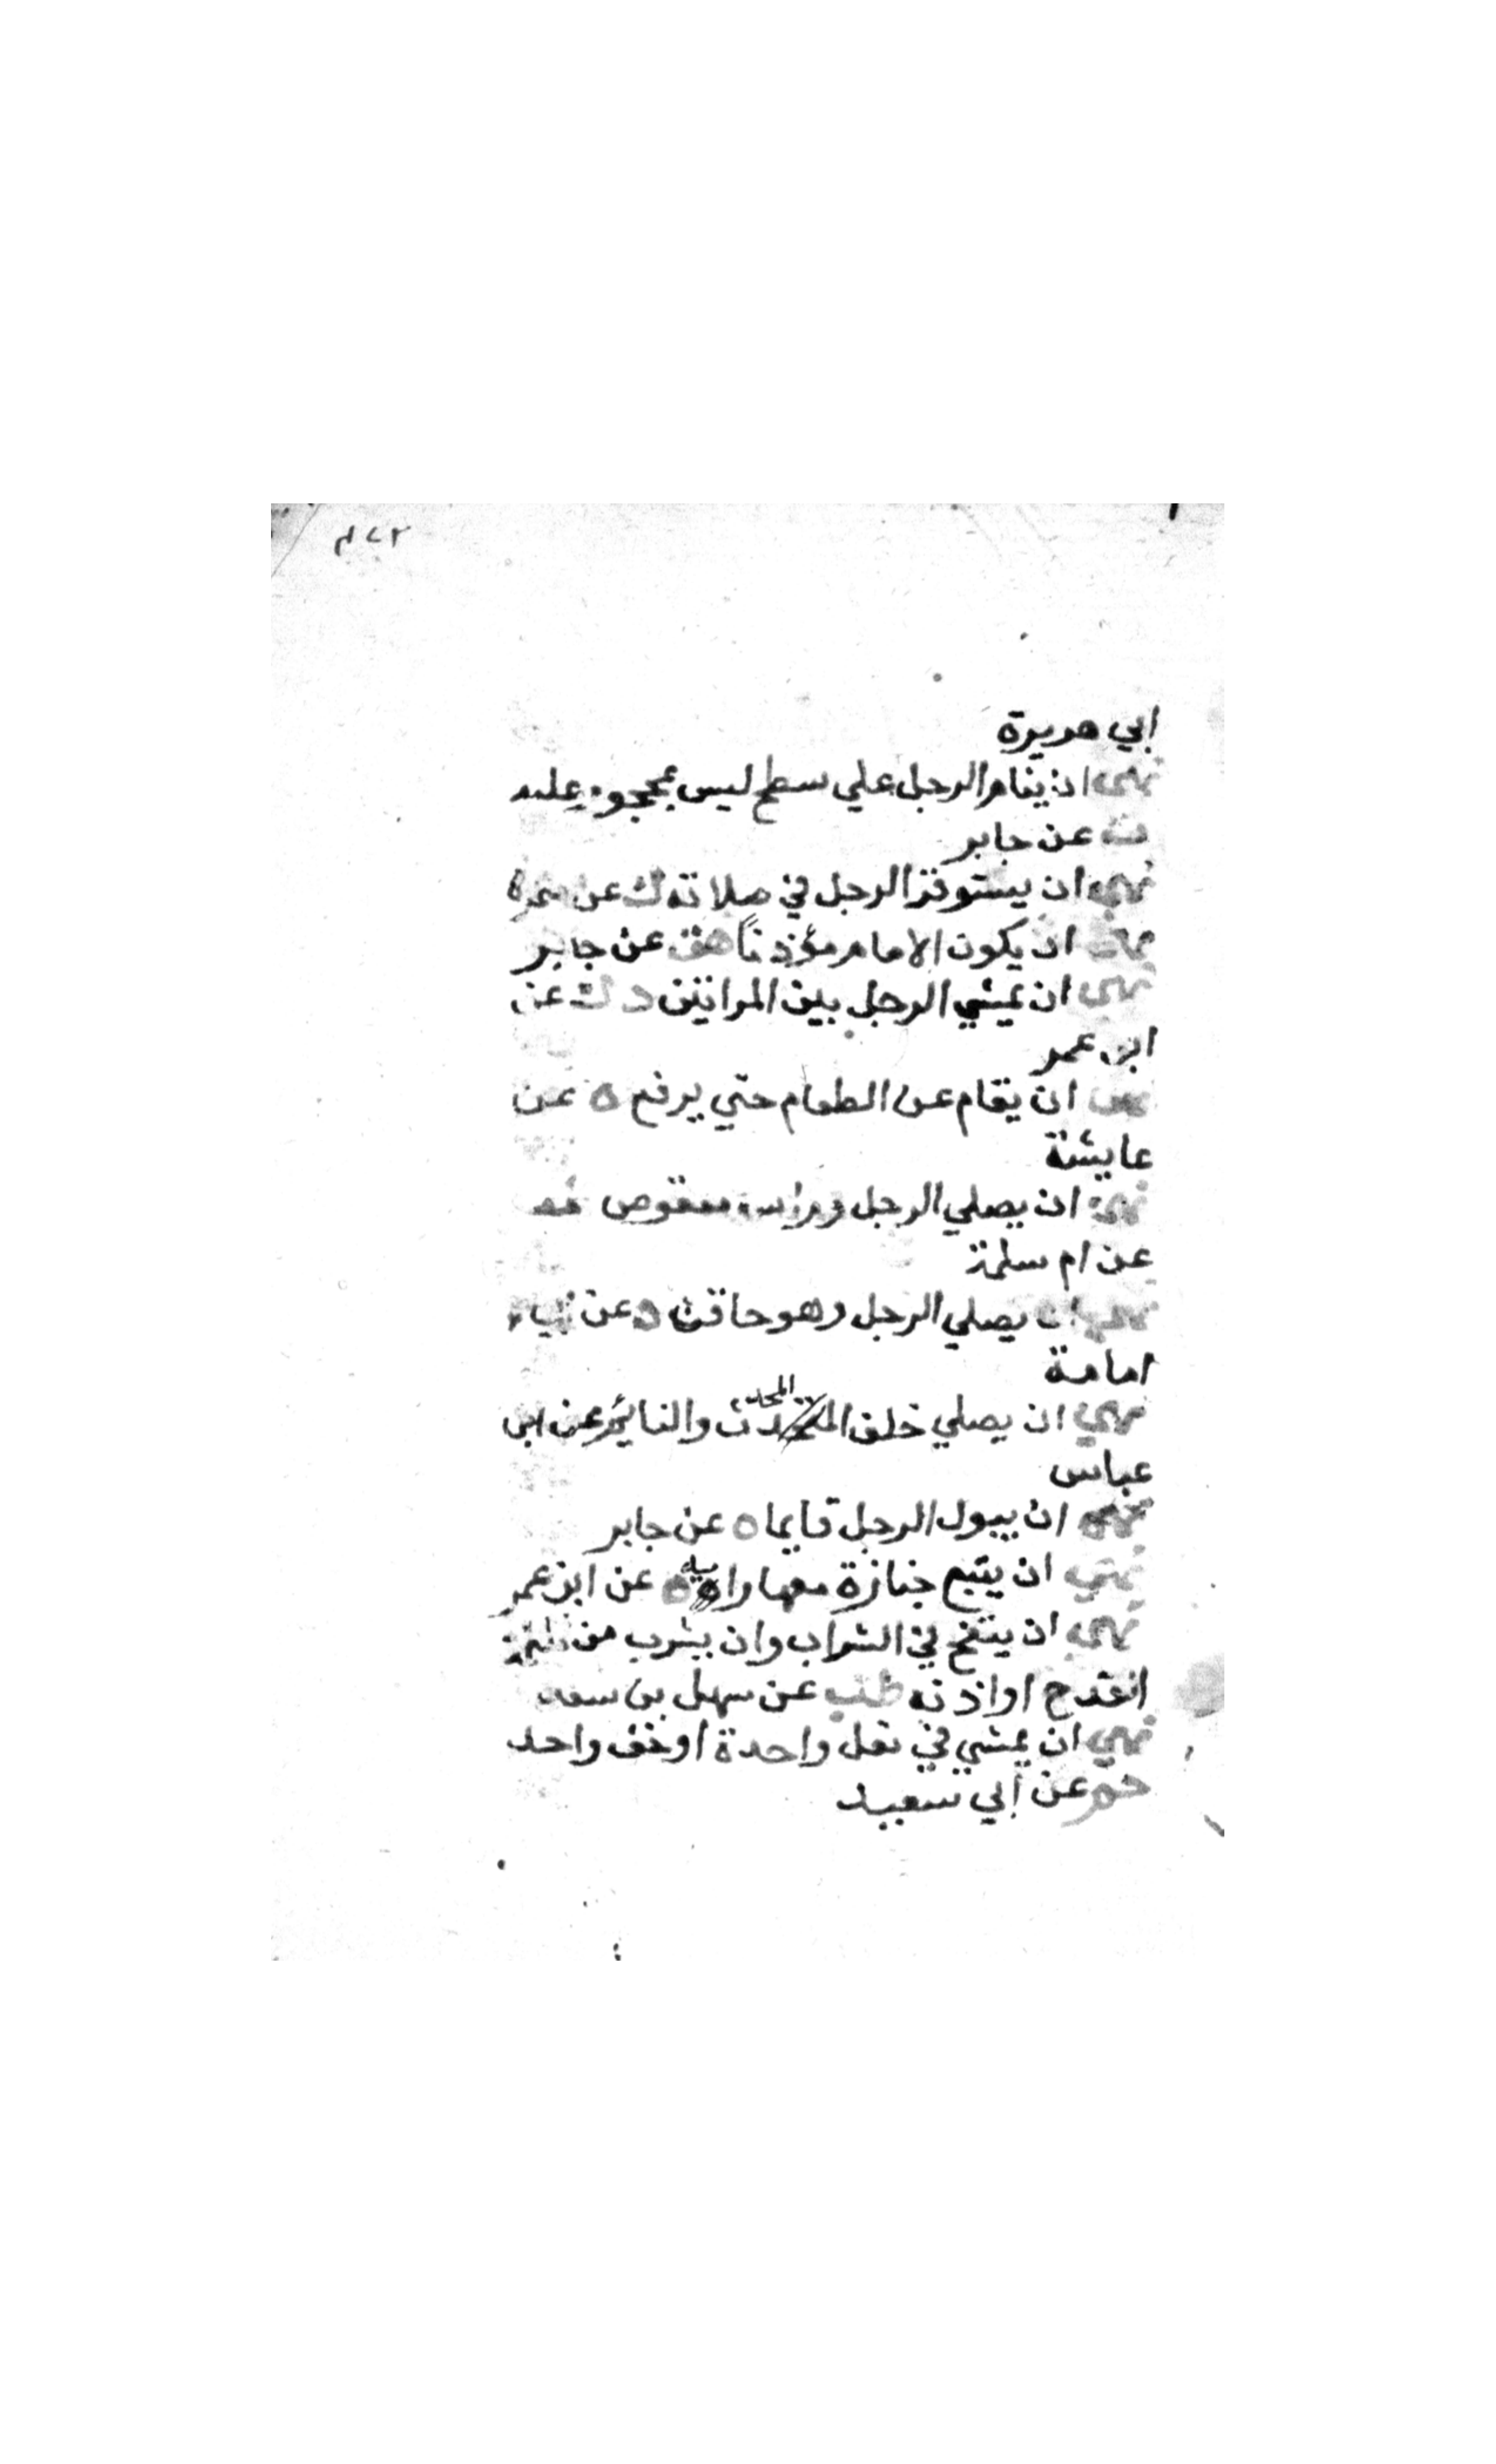 ابي هريرة
نهى ان ينام الرجل علي سطح ليس بمحجور عليه
ت عن جابر
نهى ان يستوفز الرجل في صلاته ك عن سمرة
نهى ان يكون الامام مؤذنًا هق عن جابر
نهى ان يمشي الرجل بين المراتين د ك عن
ابن عمر
نهى ان يقام عن الطعام حتي يرفع ه عن
عايشة
نهى ان يصلي الرجل وراسه معقوص طب
عن ام سلمة
نهى ان يصلي الرجل وهو حاقن ه عن ابي
امامة
نهي ان يصلي خلف المتحدث والنايم ه عن ابن
عباس
نهى ان يبول الرجل قايما ه عن جابر
نهي ان يتبع جنازة معها رانه ه عن ابن عمر
نهى ان ينفخ في الشراب وان يشرب من ثلمة
القدح او اذنه طب عن سهل بن سعد
نهي ان يمشي في نعل واحدة او خف واحد
حم عن ابي سعيد